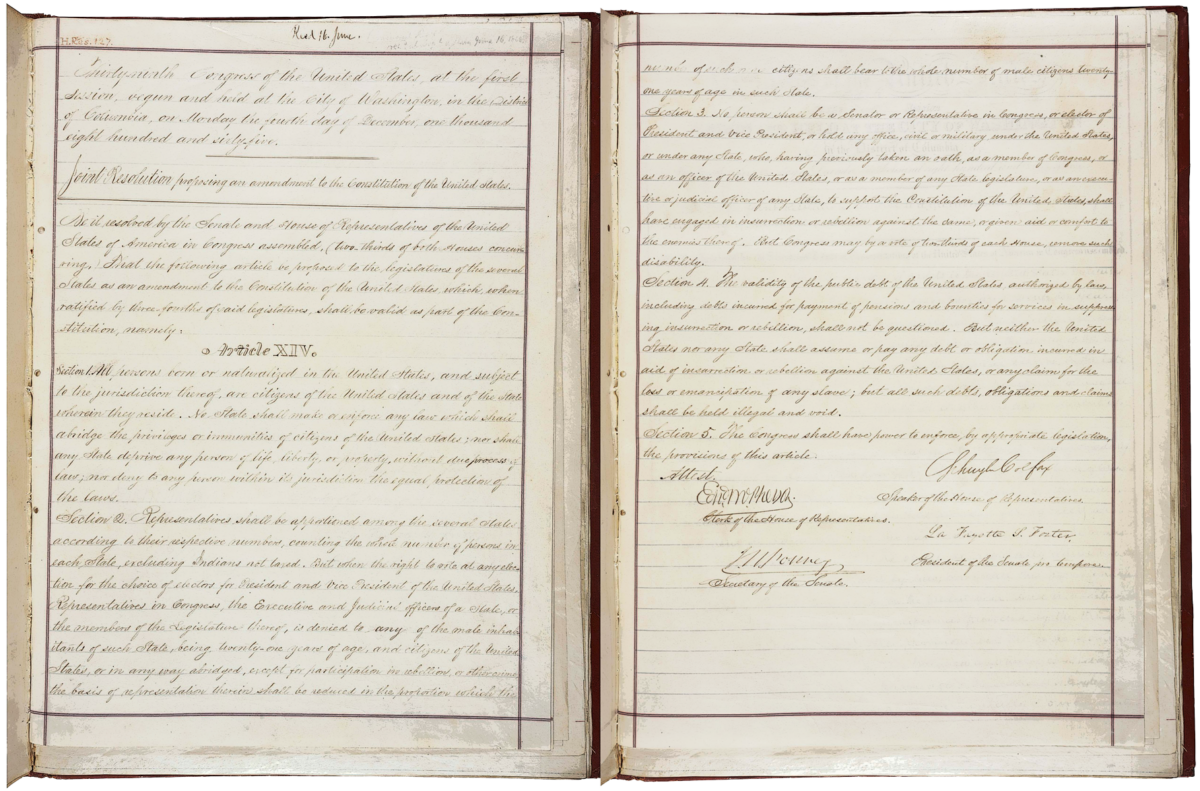 H.Res. 127.
Recd 16. June.
Thirty-ninth Congress of the United States, at the first
session, begun and held at the City of Washington, in the District
of Columbia, on Monday the fourth day of December, one thousand
eight hundred and sixty-five.
Joint Resolution proposing an amendment to the Constitution of the United States.
Be it resolved by the Senate and House of Representatives of the United
States of America in Congress assembled, (two-thirds of both Houses concur-
ring,) That the following article be proposed to the legislatures of the several
States as an amendment to the Constitution of the United States, which, when
ratified by three-fourths of said legislatures, shall be valid as part of the Con-
stitution, namely:
Article XIV.
Section 1. All persons born or naturalized in the United States, and subject
to the jurisdiction thereof, are citizens of the United States and of the State
wherein they reside. No State shall make or enforce any law which shall
abridge the privileges or immunities of citizens of the United States; nor shall
any State deprive any person of life, liberty, or property, without due process of
law; nor deny to any person within its jurisdiction the equal protection of
the laws.
Section 2. Representatives shall be apportioned among the several States
according to their respective numbers, counting the whole number of persons in
each State, excluding Indians not taxed. But when the right to vote at any elec-
tion for the choice of electors for President and Vice President of the United States,
Representatives in Congress, the Executive and Judicial officers of a State, or
the members of the Legislature thereof, is denied to any of the male inhabi-
tants of such State, being twenty-one years of age, and citizens of the United
States, or in any way abridged, except for participation in rebellion, or other crime,
the basis of representation therein shall be reduced in the proportion which the
number of such male citizens shall bear to the whole number of male citizens twenty-
one years of age in such State.
Section 3. No person shall be a Senator or Representative in Congress, or elector of
President and Vice President, or hold any office, civil or military, under the United States,
or under any State, who, having previously taken an oath, as a member of Congress, or
as an officer of the United States, or as a member of any State legislature, or as an execu-
tive or judicial officer of any State, to support the Constitution of the United States, shall
have engaged in insurrection or rebellion against the same, or given aid or comfort to
the enemies thereof. But Congress may by a vote of two-thirds of each House, remove such
disability.
Section 4. The validity of the public debt of the United States, authorized by law,
including debts incurred for payment of pensions and bounties for services in suppress-
ing insurrection or rebellion, shall not be questioned. But neither the United
States nor any State shall assume or pay any debt or obligation incurred in
aid of insurrection or rebellion against the United States, or any claim for the
loss or emancipation of any slave; but all such debts, obligations and claims
shall be held illegal and void.
Section 5. The Congress shall have power to enforce, by appropriate legislation,
the provisions of this article.
Attest.
Schuyler Colfax
Edwd McPherson
Speaker of the House of Representatives
Clerk of the House of Representatives.
La Fayette S. Foster
J. W. Forney
President of the Senate pro tempore.
Secretary of the Senate.